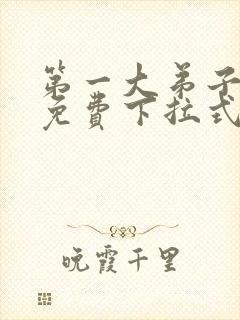 第一大弟子
免费下拉式
晚霞千里